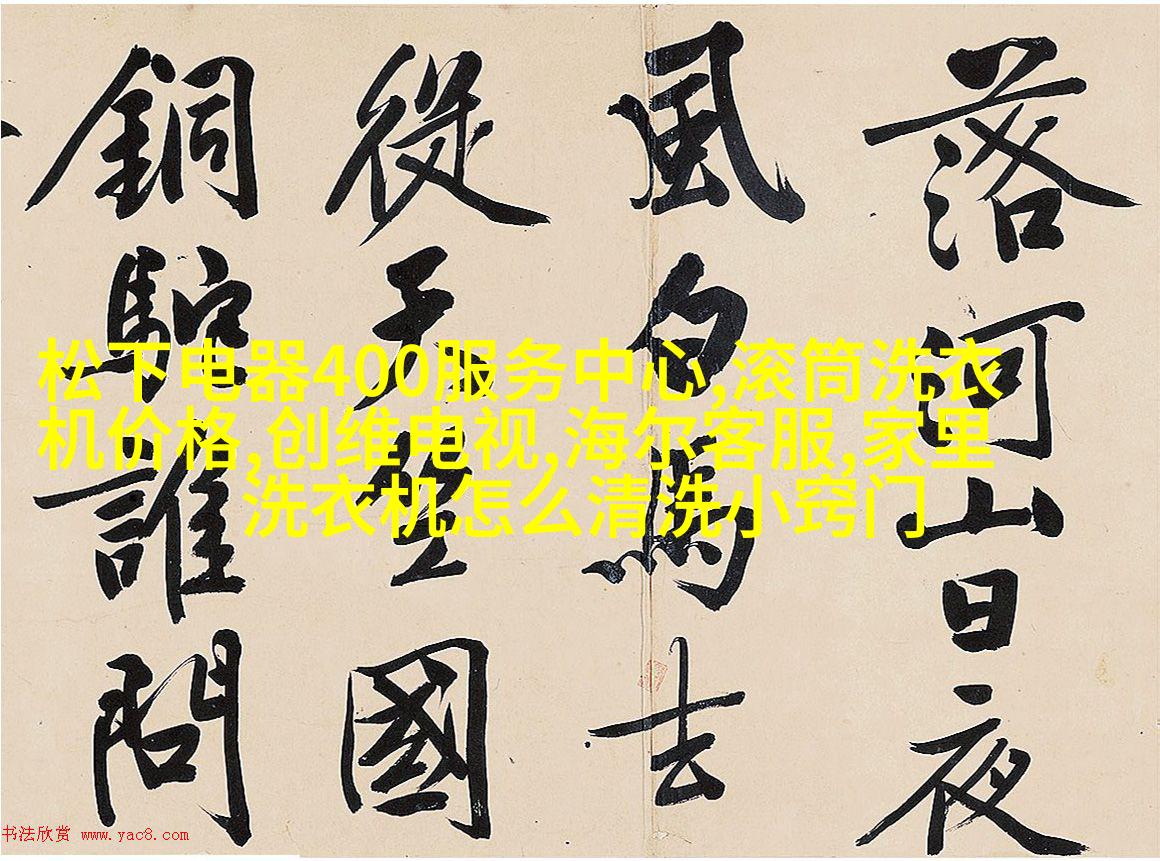 落河山日夜
風白馬去
從天竺國
銅駝誰問
松下电器400服务中心,滚筒洗衣
机价格,创维电视,海尔客服,家里
洗衣机怎么清洗小窍门
书法欣赏 www.yac8.com